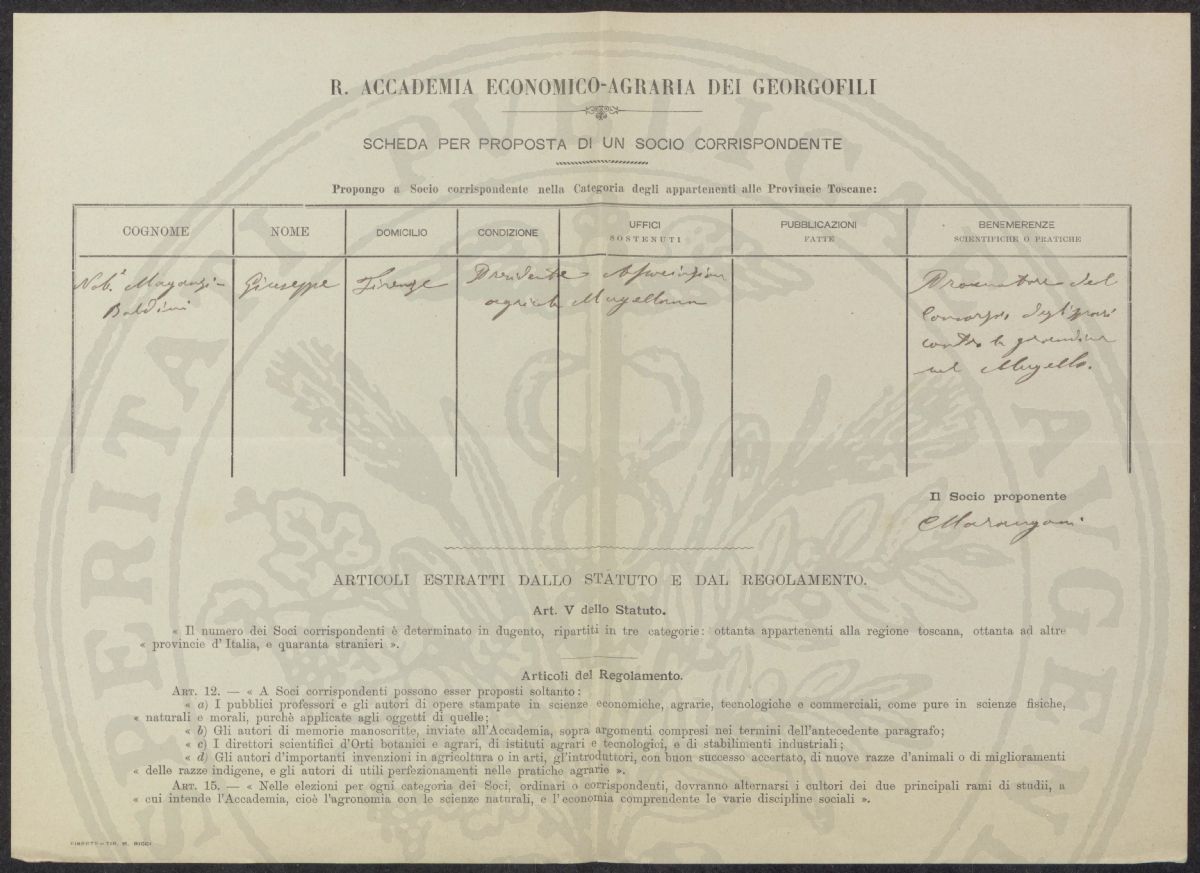 R. ACCADEMIA ECONOMICO-AGRARIA DEI GEORGOFILI
SCHEDA PER PROPOSTA DI UN SOCIO CORRISPONDENTE
Propongo a Socio corrispondente nella Categoria degli appartenenti alle Provincie Toscane:
COGNOME
NOME
DOMICILIO
CONDIZIONE
UFFICI
SOSTENUTI
PUBBLICAZIONI
FATTE
BENEMERENZE
SCIENTIFICHE O PRATICHE
Nob. Magonzi-
Baldini
Giuseppe
Firenze
Presidente Associazione
agricola Mugellana
Promotore del
Consorzio degli spari
contro la grandine
nel Mugello.
Il Socio proponente
Marangoni
ARTICOLI ESTRATTI DALLO STATUTO E DAL REGOLAMENTO.
Art. V dello Statuto.
« Il numero dei Soci corrispondenti è determinato in dugento, ripartiti in tre categorie: ottanta appartenenti alla regione toscana, ottanta ad altre
« provincie d'Italia, e quaranta stranieri ».
Articoli del Regolamento.
ART. 12. — « A Soci corrispondenti possono esser proposti soltanto:
« a) I pubblici professori e gli autori di opere stampate in scienze economiche, agrarie, tecnologiche e commerciali, come pure in scienze fisiche,
« naturali e morali, purchè applicate agli oggetti di quelle;
« b) Gli autori di memorie manoscritte, inviate all'Accademia, sopra argomenti compresi nei termini dell'antecedente paragrafo;
« c) I direttori scientifici d'Orti botanici e agrari, di istituti agrari e tecnologici, e di stabilimenti industriali;
« d) Gli autori d'importanti invenzioni in agricoltura o in arti, gl'introduttori, con buon successo accertato, di nuove razze d'animali o di miglioramenti
« delle razze indigene, e gli autori di utili perfezionamenti nelle pratiche agrarie ».
ART. 15. — « Nelle elezioni per ogni categoria dei Soci, ordinari o corrispondenti, dovranno alternarsi i cultori dei due principali rami di studii, a
« cui intende l'Accademia, cioè l'agronomia con le scienze naturali, e l'economia comprendente le varie discipline sociali ».
FIRENZE — TIP. M. RICCI